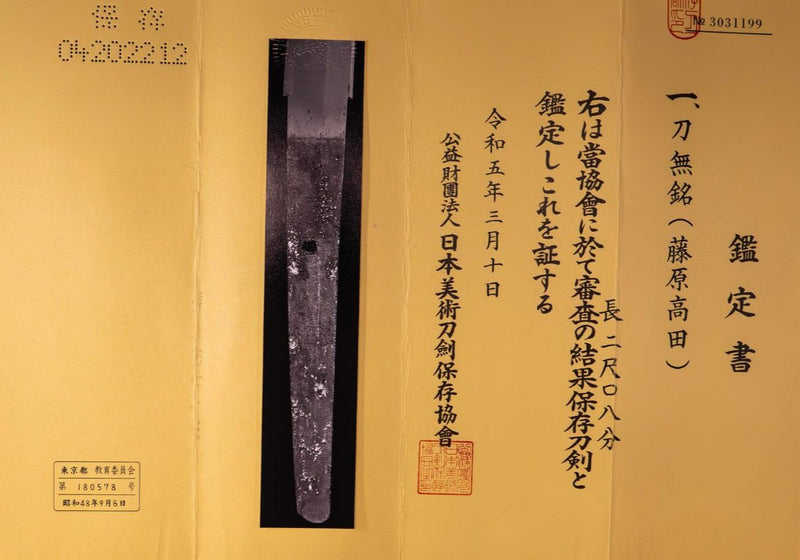 № 3031199
鑑定書
一、刀無銘(藤原高田)
長 二尺〇八分
右は當協會に於て審査の結果保存刀剣と
鑑定しこれを証する
令和五年三月十日
公益財團法人 日本美術刀劍保存協會
保存
04202212
東京都 教育委員会
第 180578 号
昭和48年9月6日